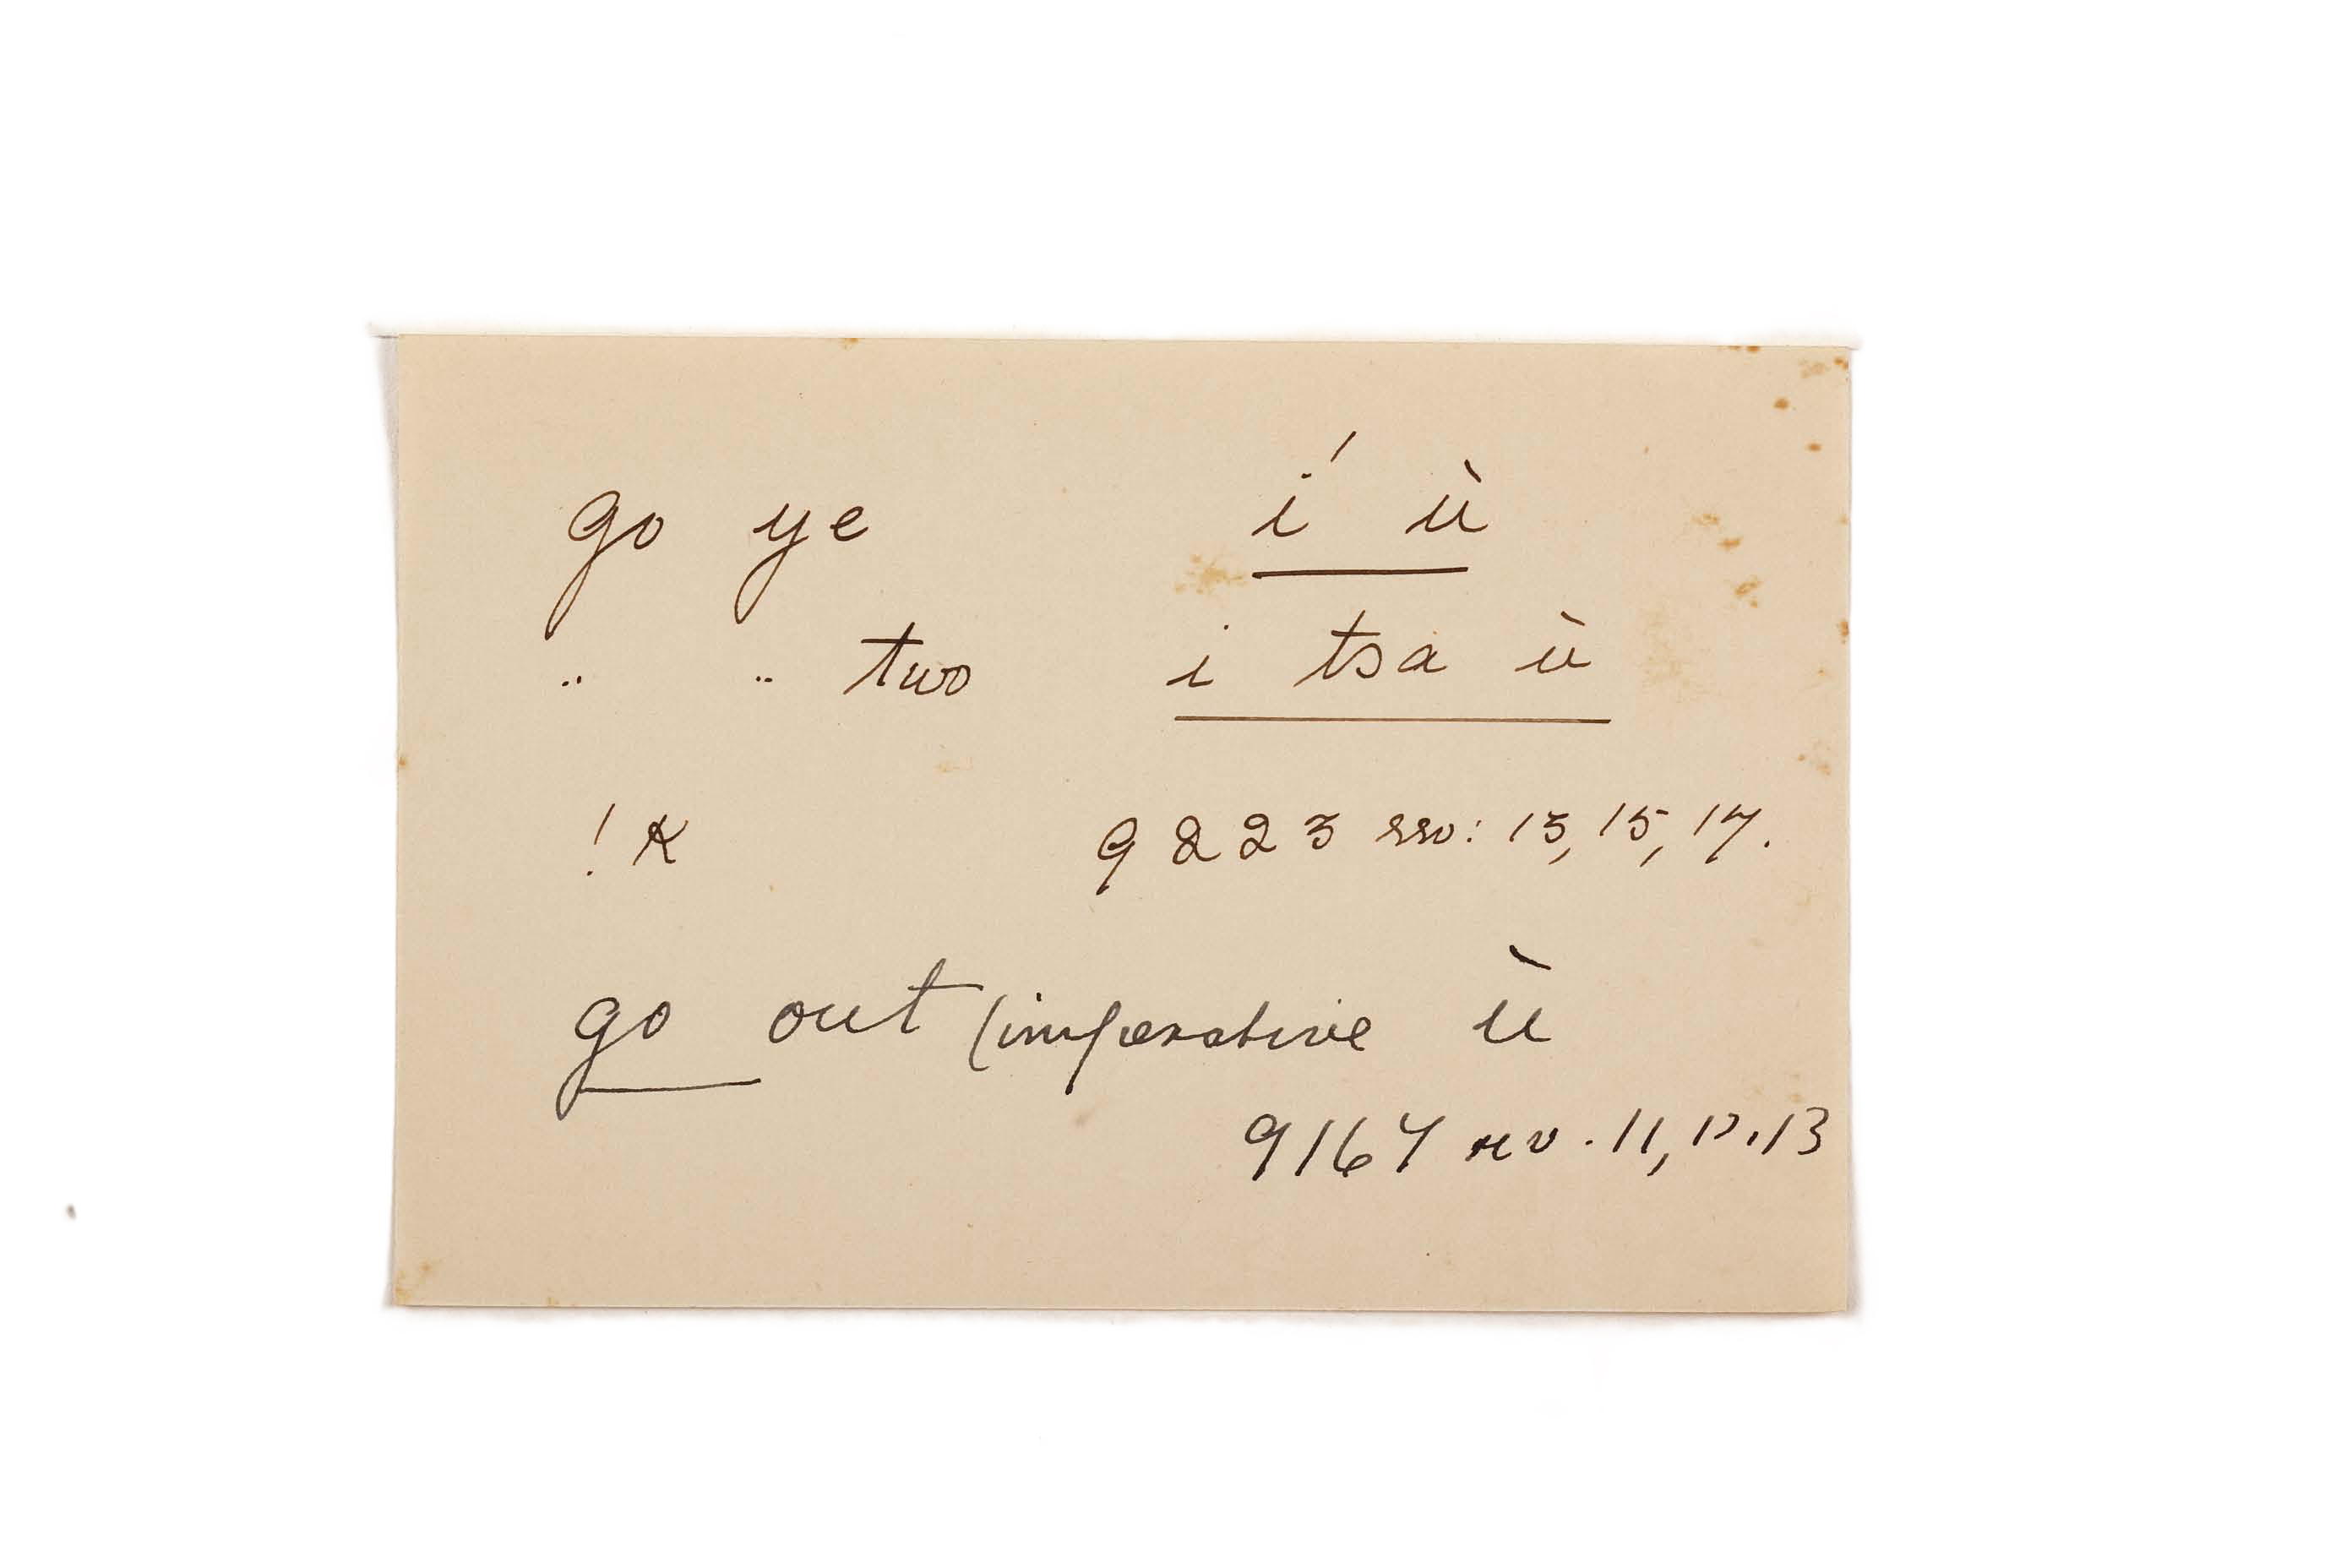 go ye í ù
" " two i tsa ù
! K 9223 rev: 13, 15, 17.
go out (imperative ù
9167 rev. 11, 12, 13